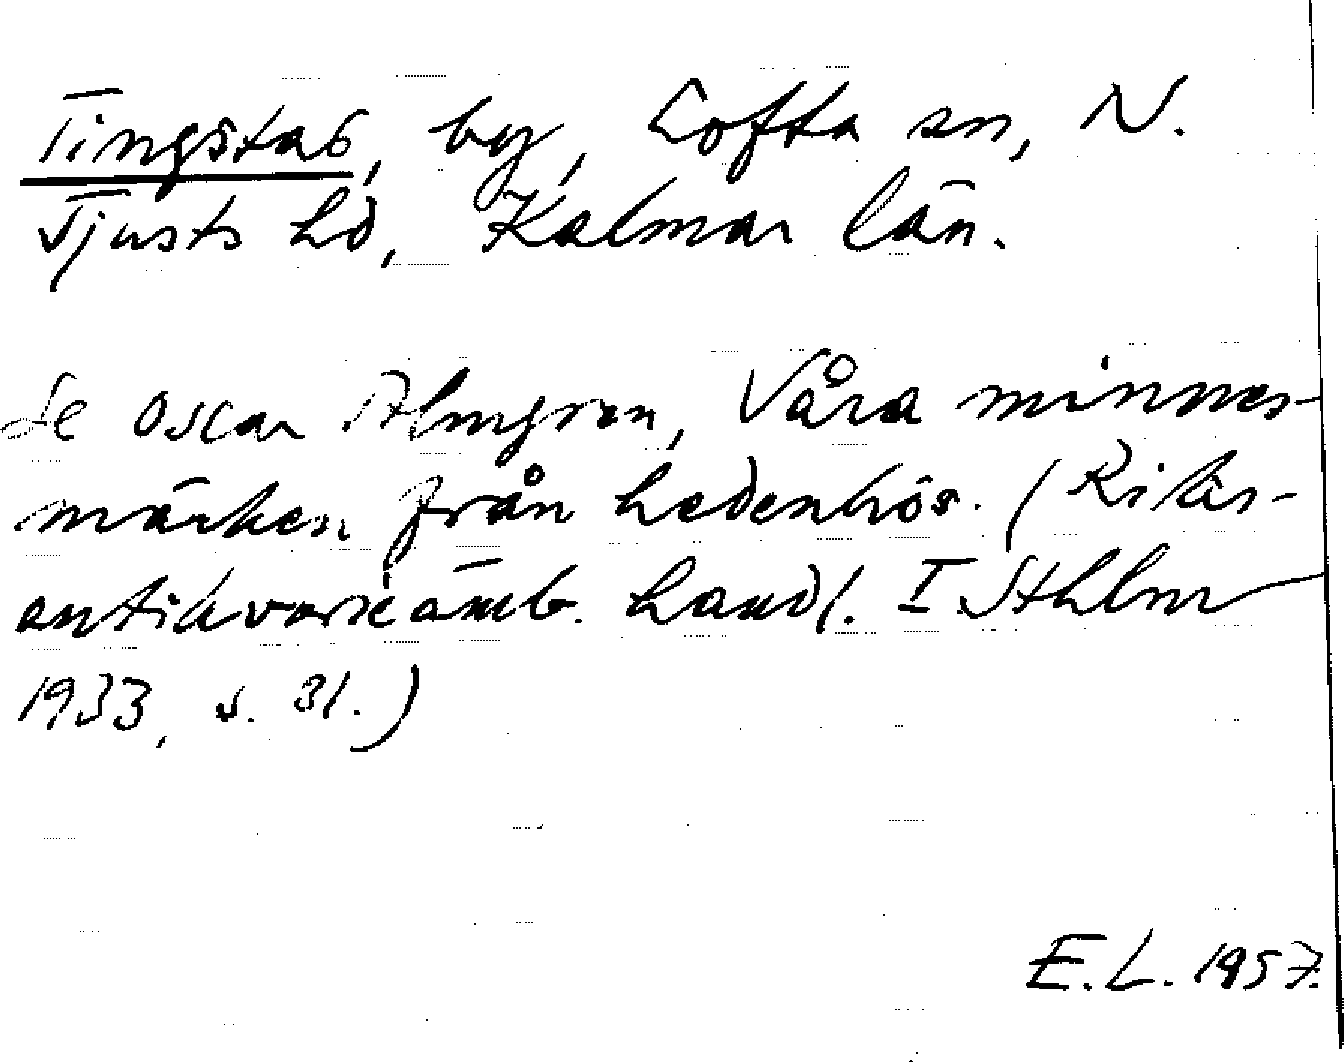 Tingstad, by, Lofta sn, N.
Tjusts hd, Kalmar län.
Se Oscar Almgren, Våra minnes-
märken från hedenhös. (Riks-
antikvarieämb. handl. I Sthlm
1933, s. 31.)
E.L. 1957.